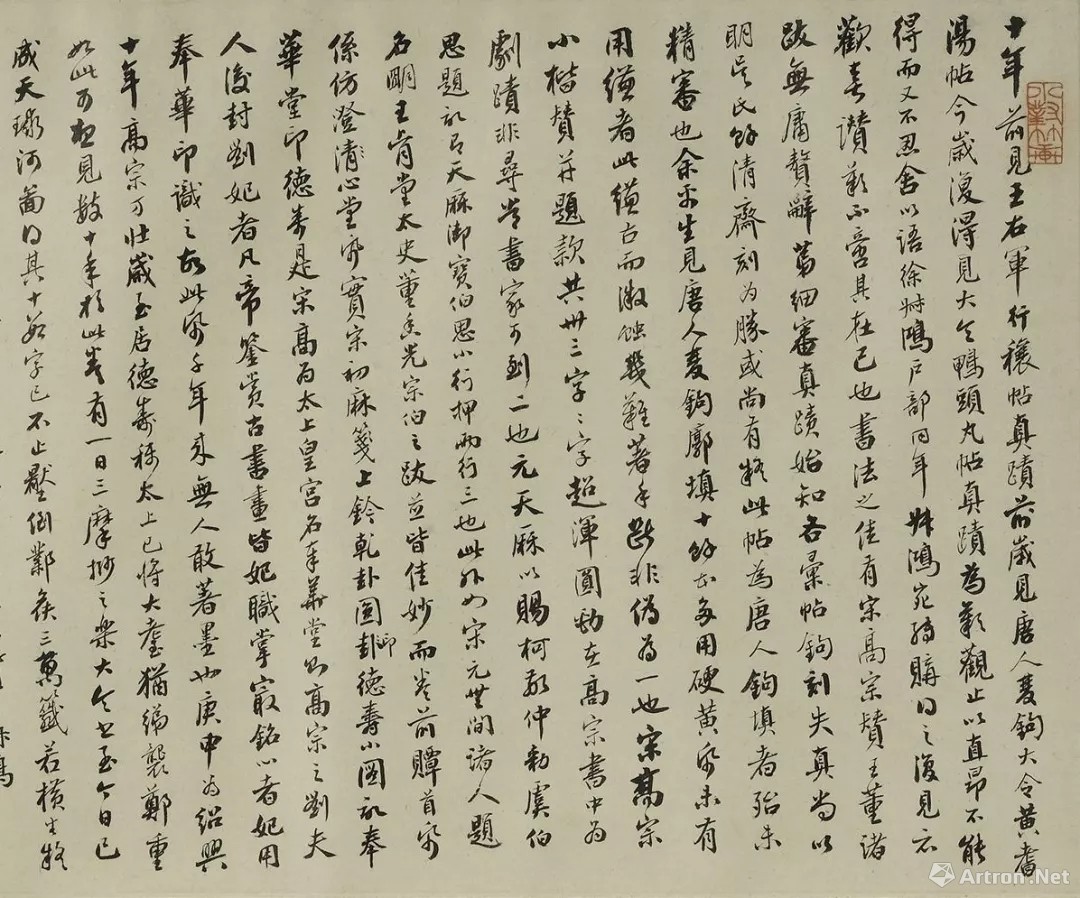 十年前見王右軍行穰帖真蹟前歲見唐人雙鉤大令黃耆
湯帖今歲復得見大令鴨頭丸帖真蹟為歎觀止以直昂不能
得而又不忍舍以語徐叔鴻戶部同年叔鴻宛轉購得之復見示
歡喜讚歎不啻其在己也書法之佳有宋高宗贊王董諸
跋無庸贅辭蓋細審真蹟始知各彙帖鉤刻失真尚以
明吳氏餘清齋刻為勝或尚有疑此帖為唐人鉤填者殆未
精審也余平生見唐人雙鉤廓填十餘本多用硬黃紙未有
用縑者此縑古而微蝕幾難著手斷非偽為一也宋高宗
小楷贊并題款共卅三字字字超渾圓勁在高宗書中為
劇蹟非尋常書家可到二也元天厤以賜柯敬仲勅虞伯
思題記有天厤御寶伯思小行押兩行三也此外如宋元世間諸人題
名明王肯堂太史董香光宗伯之跋並皆佳妙而卷前贉首紙
係仿澄清心堂紙實宋初麻箋上鈐乾卦圓卦印德壽小圓記奉
華堂印德壽是宋高為太上皇宮名奉華堂則高宗之劉夫
人後封劉妃者凡帝鑒賞古書畫皆妃職掌最銘心者妃用
奉華印識之故此紙千年來無人敢著墨也庚申為紹興
十年高宗方壯歲至居德壽稱太上已將大耋猶綈襲鄭重
如此可想見數十年於此卷有一日三摩挲之樂大令書至今日已
成天球河圖得其十數字已不止壓倒鄴矦三萬籤若橫生疑
Artron.Net